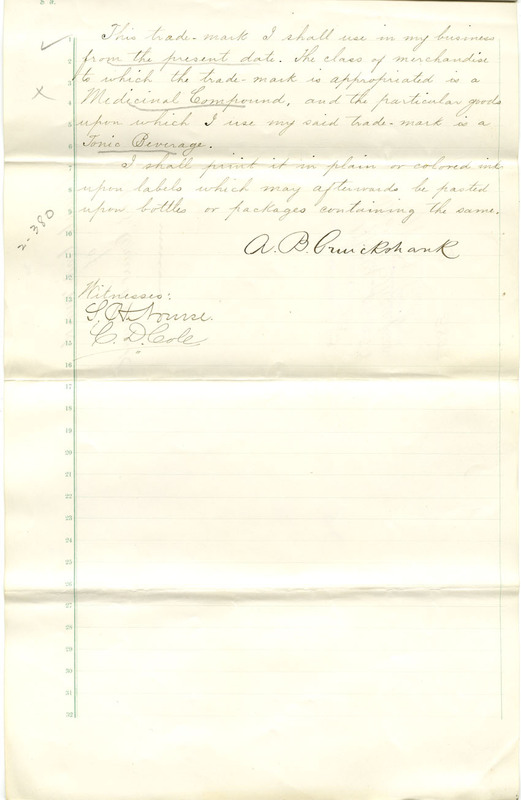 This trade-mark I shall use in my business
from the present date. The class of merchandise
to which the trade-mark is appropriated is a
Medicinal Compound, and the particular goods
upon which I use my said trade-mark is a
Tonic Beverage.
I shall print it in plain or colored ink
upon labels which may afterwards be pasted
upon bottles or packages containing the same.
2-380
A. B. Cruickshank
Witnesses:
S. H. Nourse.
C. D. Cole.
1
2
3
4
5
6
7
8
9
10
11
12
13
14
15
16
17
18
19
20
21
22
23
24
25
26
27
28
29
30
31
32